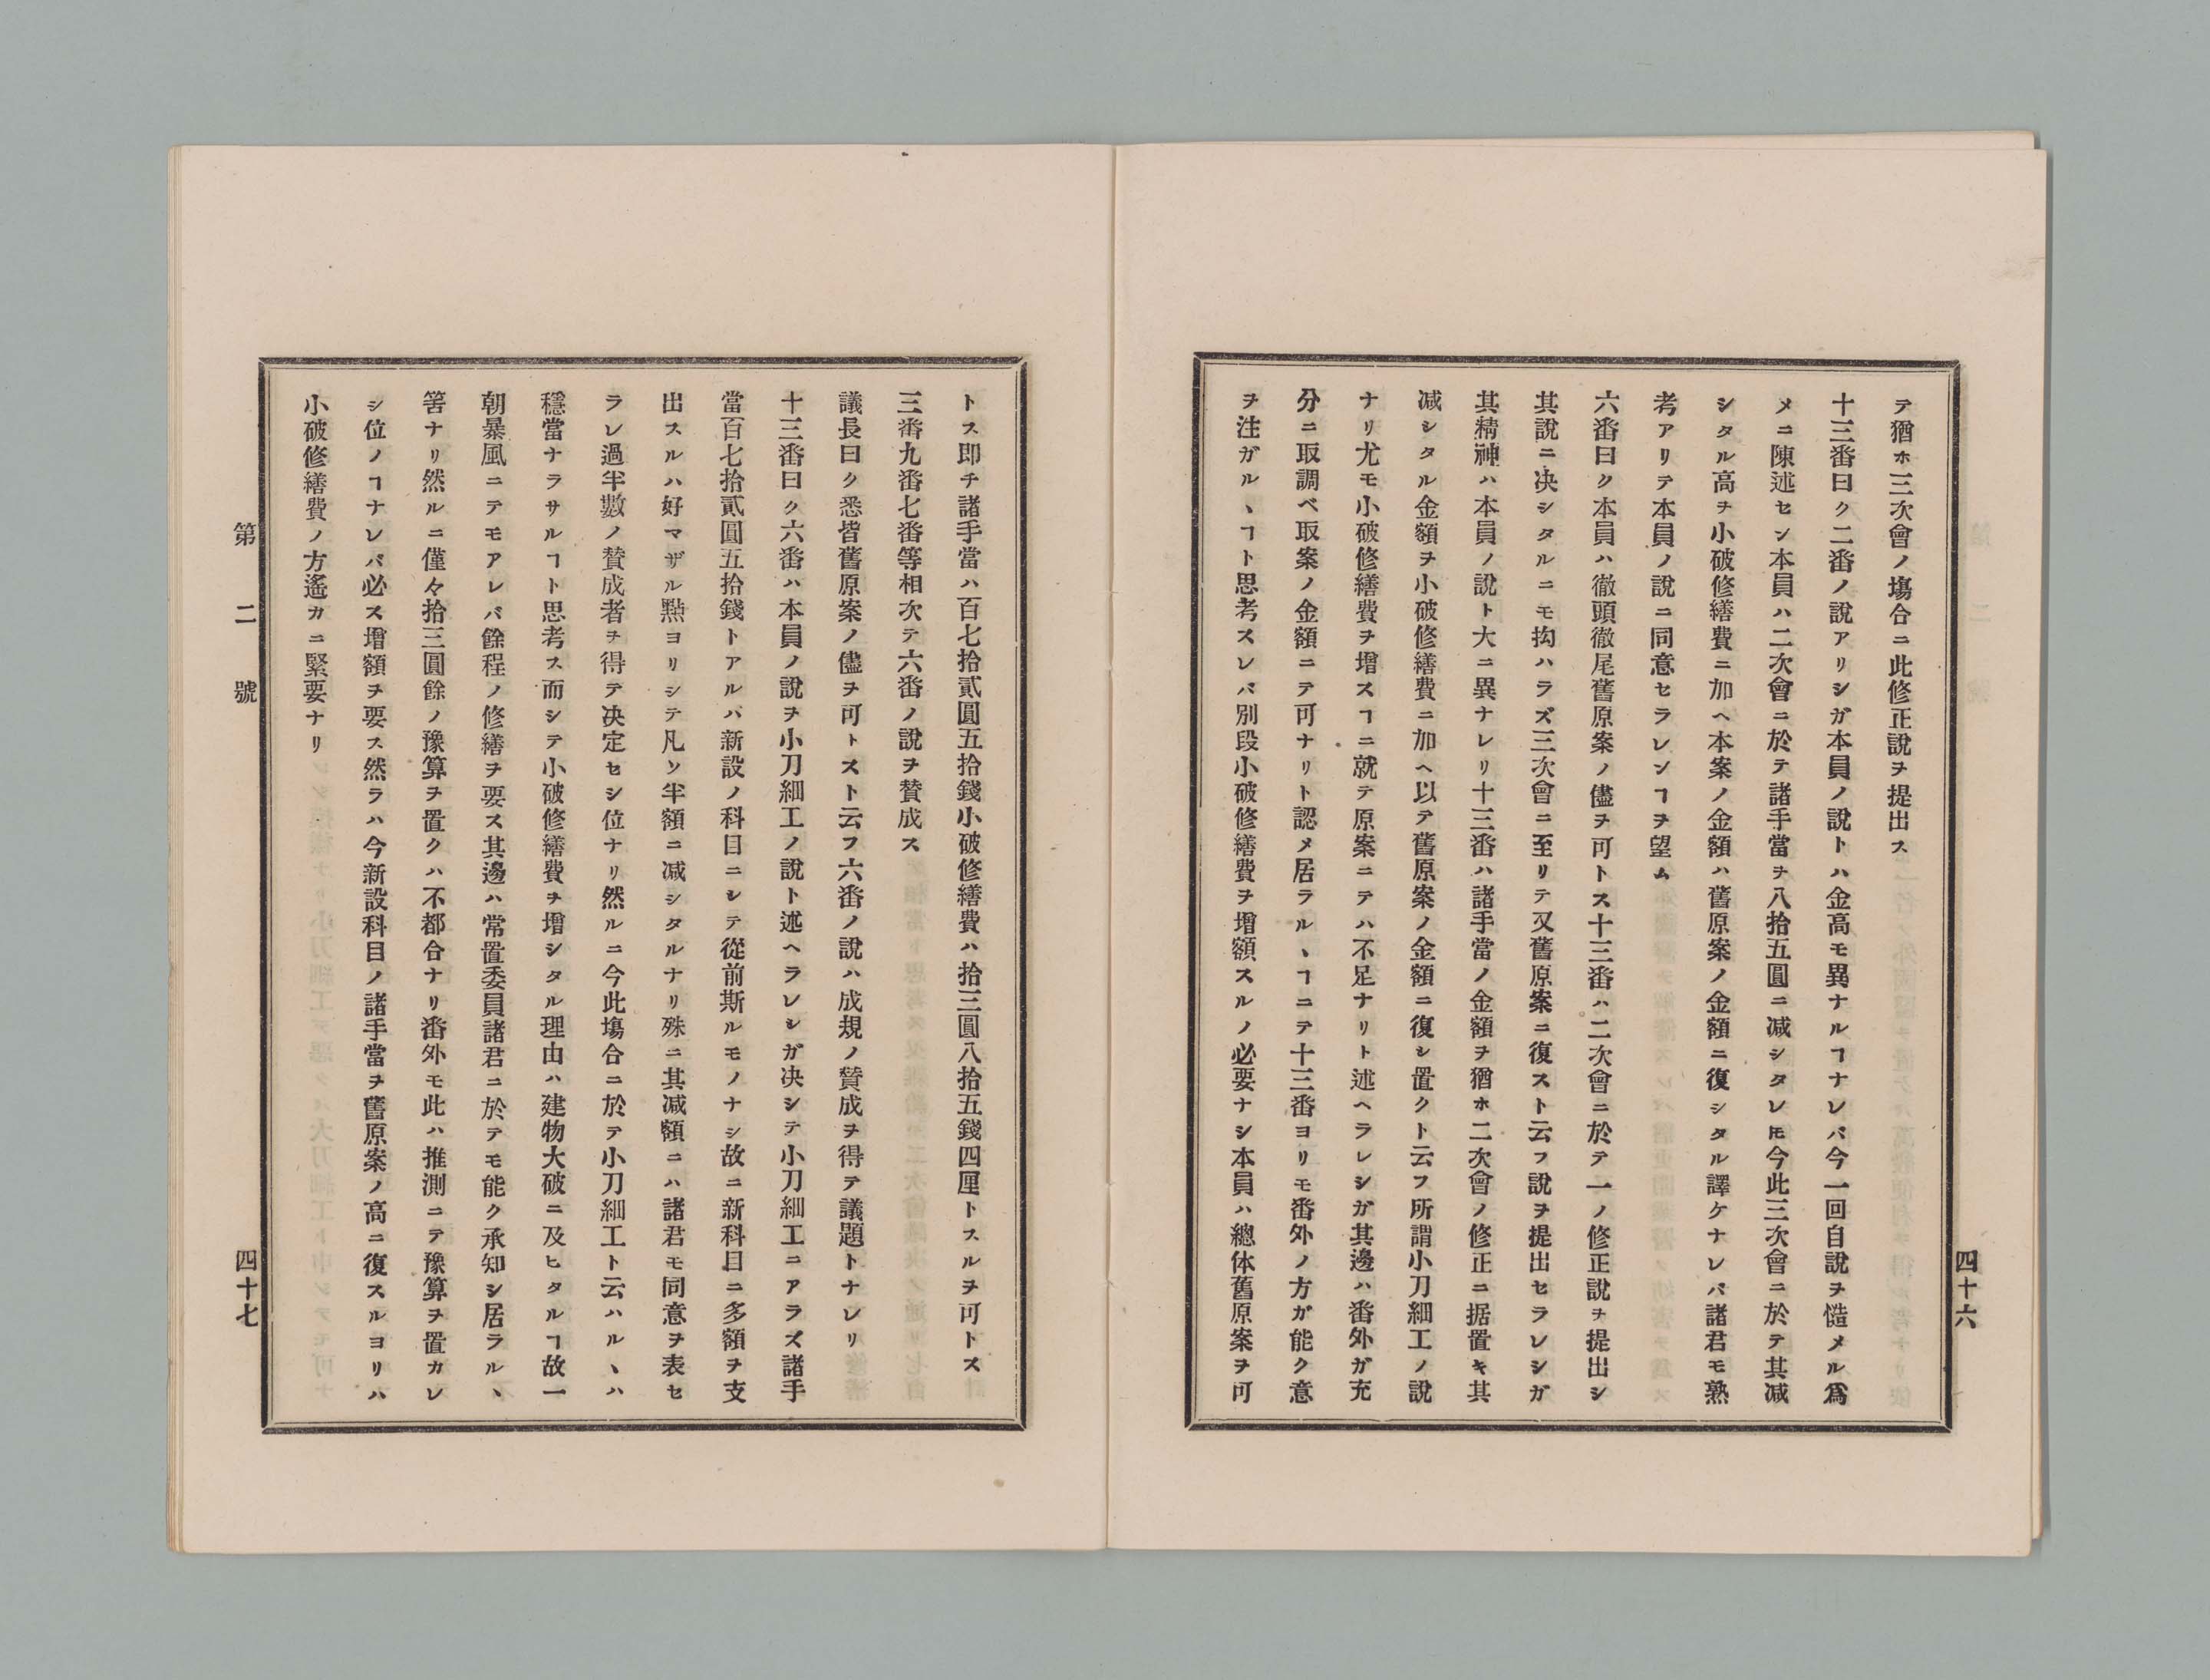 テ猶ホ三次會ノ塲合ニ此修正說ヲ提出ス
十三番曰ク二番ノ說アリシガ本員ノ說トハ金高モ異ナルヿナレバ今一回自說ヲ慥メル爲
メニ陳述セン本員ハ二次會ニ於テ諸手當ヲ八拾五圓ニ减シタレ𪜈今此三次會ニ於テ其减
シタル高ヲ小破修繕費ニ加ヘ本案ノ金額ハ舊原案ノ金額ニ復シタル譯ケナレバ諸君モ熟
考アリテ本員ノ說ニ同意セラレンヿヲ望ム
六番曰ク本員ハ徹頭徹尾舊原案ノ儘ヲ可トス十三番ハ二次會ニ於テ一ノ修正說ヲ提出シ
其說ニ决シタルニモ拘ハラズ三次會ニ至リテ又舊原案ニ復スト云フ說ヲ提出セラレシガ
其精神ハ本員ノ說ト大ニ異ナレリ十三番ハ諸手當ノ金額ヲ猶ホ二次會ノ修正ニ据置キ其
减シタル金額ヲ小破修繕費ニ加ヘ以テ舊原案ノ金額ニ復シ置クト云フ所謂小刀細工ノ說
ナリ尤モ小破修繕費ヲ增スヿニ就テ原案ニテハ不足ナリト述ヘラレシガ其邊ハ番外ガ充
分ニ取調ベ取案ノ金額ニテ可ナリト認メ居ラルヽヿニテ十三番ヨリモ番外ノ方ガ能ク意
ヲ注ガルヽヿト思考スレバ別段小破修繕費ヲ增額スルノ必要ナシ本員ハ總体舊原案ヲ可
四十六
トス即チ諸手當ハ百七拾貳圓五拾錢小破修繕費ハ拾三圓八拾五錢四厘トスルヲ可トス
三番九番七番等相次テ六番ノ說ヲ賛成ス
議長曰ク悉皆舊原案ノ儘ヲ可トスト云フ六番ノ說ハ成規ノ賛成ヲ得テ議題トナレリ
十三番曰ク六番ハ本員ノ說ヲ小刀細工ノ說ト述ヘラレシガ决シテ小刀細工ニアラズ諸手
當百七拾貳圓五拾錢トアルハ新設ノ科目ニシテ從前斯ルモノナシ故ニ新科目ニ多額ヲ支
出スルハ好マザル點ヨリシテ凡ソ半額ニ减シタルナリ殊ニ其减額ニハ諸君モ同意ヲ表セ
ラレ過半數ノ賛成者ヲ得テ决定セシ位ナリ然ルニ今此塲合ニ於テ小刀細工ト云ハルヽハ
穩當ナラサルヿト思考ス而シテ小破修繕費ヲ增シタル理由ハ建物大破ニ及ヒタルヿ故一
朝暴風ニテモアレバ餘程ノ修繕ヲ要ス其邊ハ常置委員諸君ニ於テモ能ク承知シ居ラルヽ
筈ナリ然ルニ僅々拾三圓餘ノ豫算ヲ置クハ不都合ナリ番外モ此ハ推測ニテ豫算ヲ置カレ
シ位ノヿナレバ必ス增額ヲ要ス然ラハ今新設科目ノ諸手當ヲ舊原案ノ高ニ復スルヨリハ
小破修繕費ノ方遙カニ緊要ナリ
第二號
四十七